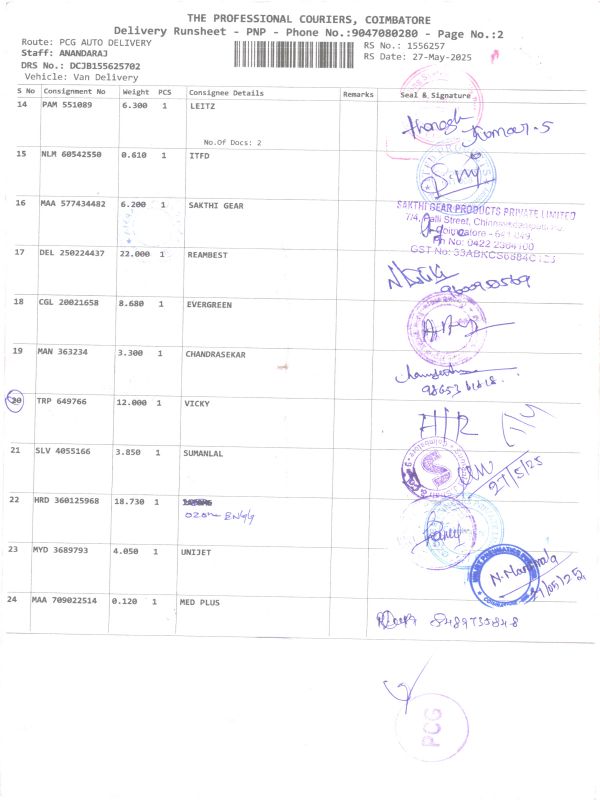 THE PROFESSIONAL COURIERS, COIMBATORE
Delivery Runsheet - PNP - Phone No.:9047080280 - Page No.:2
Route: PCG AUTO DELIVERY
Staff: ANANDARAJ
DRS No.: DCJB155625702
Vehicle: Van Delivery
RS No.: 1556257
RS Date: 27-May-2025
S No Consignment No Weight PCS Consignee Details Remarks Seal & Signature
14 PAM 551089 6.300 1 LEITZ
No.Of Docs: 2
Kumar.S
15 NLM 60542550 0.610 1 ITFD
16 MAA 577434482 6.200 1 SAKTHI GEAR
SAKTHI GEAR PRODUCTS PRIVATE LIMITED
Coimbatore - 641 049.
Ph No: 0422 2364100
17 DEL 250224437 22.000 1 REAMBEST
18 CGL 20021658 8.680 1 EVERGREEN
19 MAN 363234 3.300 1 CHANDRASEKAR
20 TRP 649766 12.000 1 VICKY
H/R
21 SLV 4055166 3.850 1 SUMANLAL
S
27/5/25
22 HRD 360125968 18.730 1
ozone ENGG
23 MYD 3689793 4.050 1 UNIJET
24 MAA 709022514 0.120 1 MED PLUS
PCG